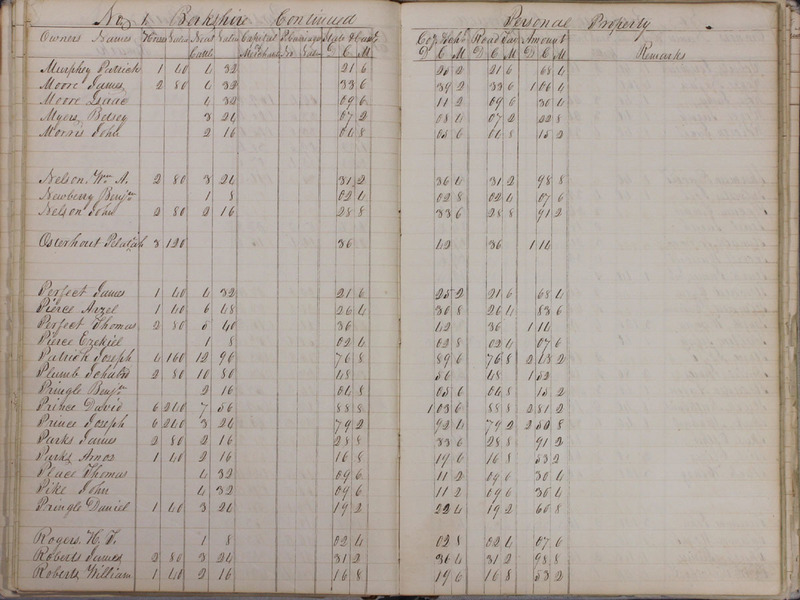 No. 1 Berkshire Continued Personal Property
Owners Names Horses Value Neat Cattle Value Capital Merchat. P. Carriage Val. State & Canal D C M Co. & School D C M Road Amount D C M Remarks
Murphey Patrick 1 40 4 32 21 6 25 2 21 6 68 4
Moore James 2 80 4 32 33 6 39 2 33 6 1 06 4
Moore Isaac 4 32 09 6 11 2 09 6 30 4
Myers Betsey 3 24 07 2 08 4 07 2 22 8
Morris John 2 16 04 8 05 6 04 8 15 2
Nelson, Wm A. 2 80 3 24 31 2 36 4 31 2 98 8
Newberry Benjn 1 8 02 4 02 8 02 4 07 6
Nelson John 2 80 2 16 28 8 33 6 28 8 91 2
Osterhout Pelatiah 3 120 36 42 36 1 14
Perfect James 1 40 4 32 21 6 25 2 21 6 68 4
Pierce 1 40 6 48 26 4 30 8 26 4 83 6
Perfect Thomas 2 80 5 40 36 42 36 1 14
Pierce Ezekiel 1 8 02 4 02 8 02 4 07 6
Patrick Joseph 4 160 12 96 76 8 89 6 76 8 2 43 2
Plumb 2 80 10 80 48 56 48 1 52
Pringle Benjn 2 16 04 8 05 6 04 8 15 2
Prince David 6 240 7 56 88 8 1 03 6 88 8 2 81 2
Prince Joseph 6 240 3 24 79 2 92 4 79 2 2 50 8
Parks James 2 80 2 16 28 8 33 6 28 8 91 2
Parks Amos 1 40 2 16 16 8 19 6 16 8 53 2
Place Thomas 4 32 09 6 11 2 09 6 30 4
Pike John 4 32 09 6 11 2 09 6 30 4
Pringle Daniel 1 40 3 24 19 2 22 4 19 2 60 8
Rogers, H. T. 1 8 02 4 02 8 02 4 07 6
Roberts James 2 80 3 24 31 2 36 4 31 2 98 8
Roberts William 1 40 2 16 16 8 19 6 16 8 53 2